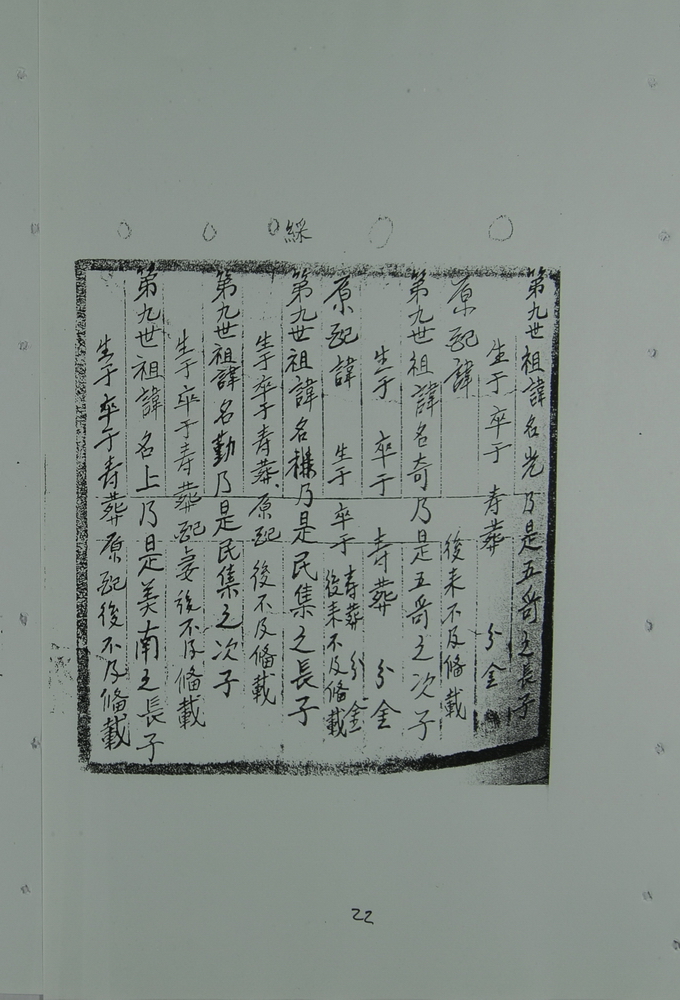 綵
第九世祖諱名光乃是五奇之長子
生于 卒于 寿葬 分金
原配諱 後来不及俻載
第九世祖諱名奇乃是五奇之次子
生于 卒于 寿葬 分金
原配諱 生于 卒于 寿葬 分金
後来不及俻載
第九世祖諱名 乃是民集之長子
生于卒于寿葬原配後不及俻載
第九世祖諱名勤乃是民集之次子
生于卒于寿葬配妻後不及俻載
第九世祖諱名上乃是美南之長子
生于卒于寿葬原配後不及俻載
22